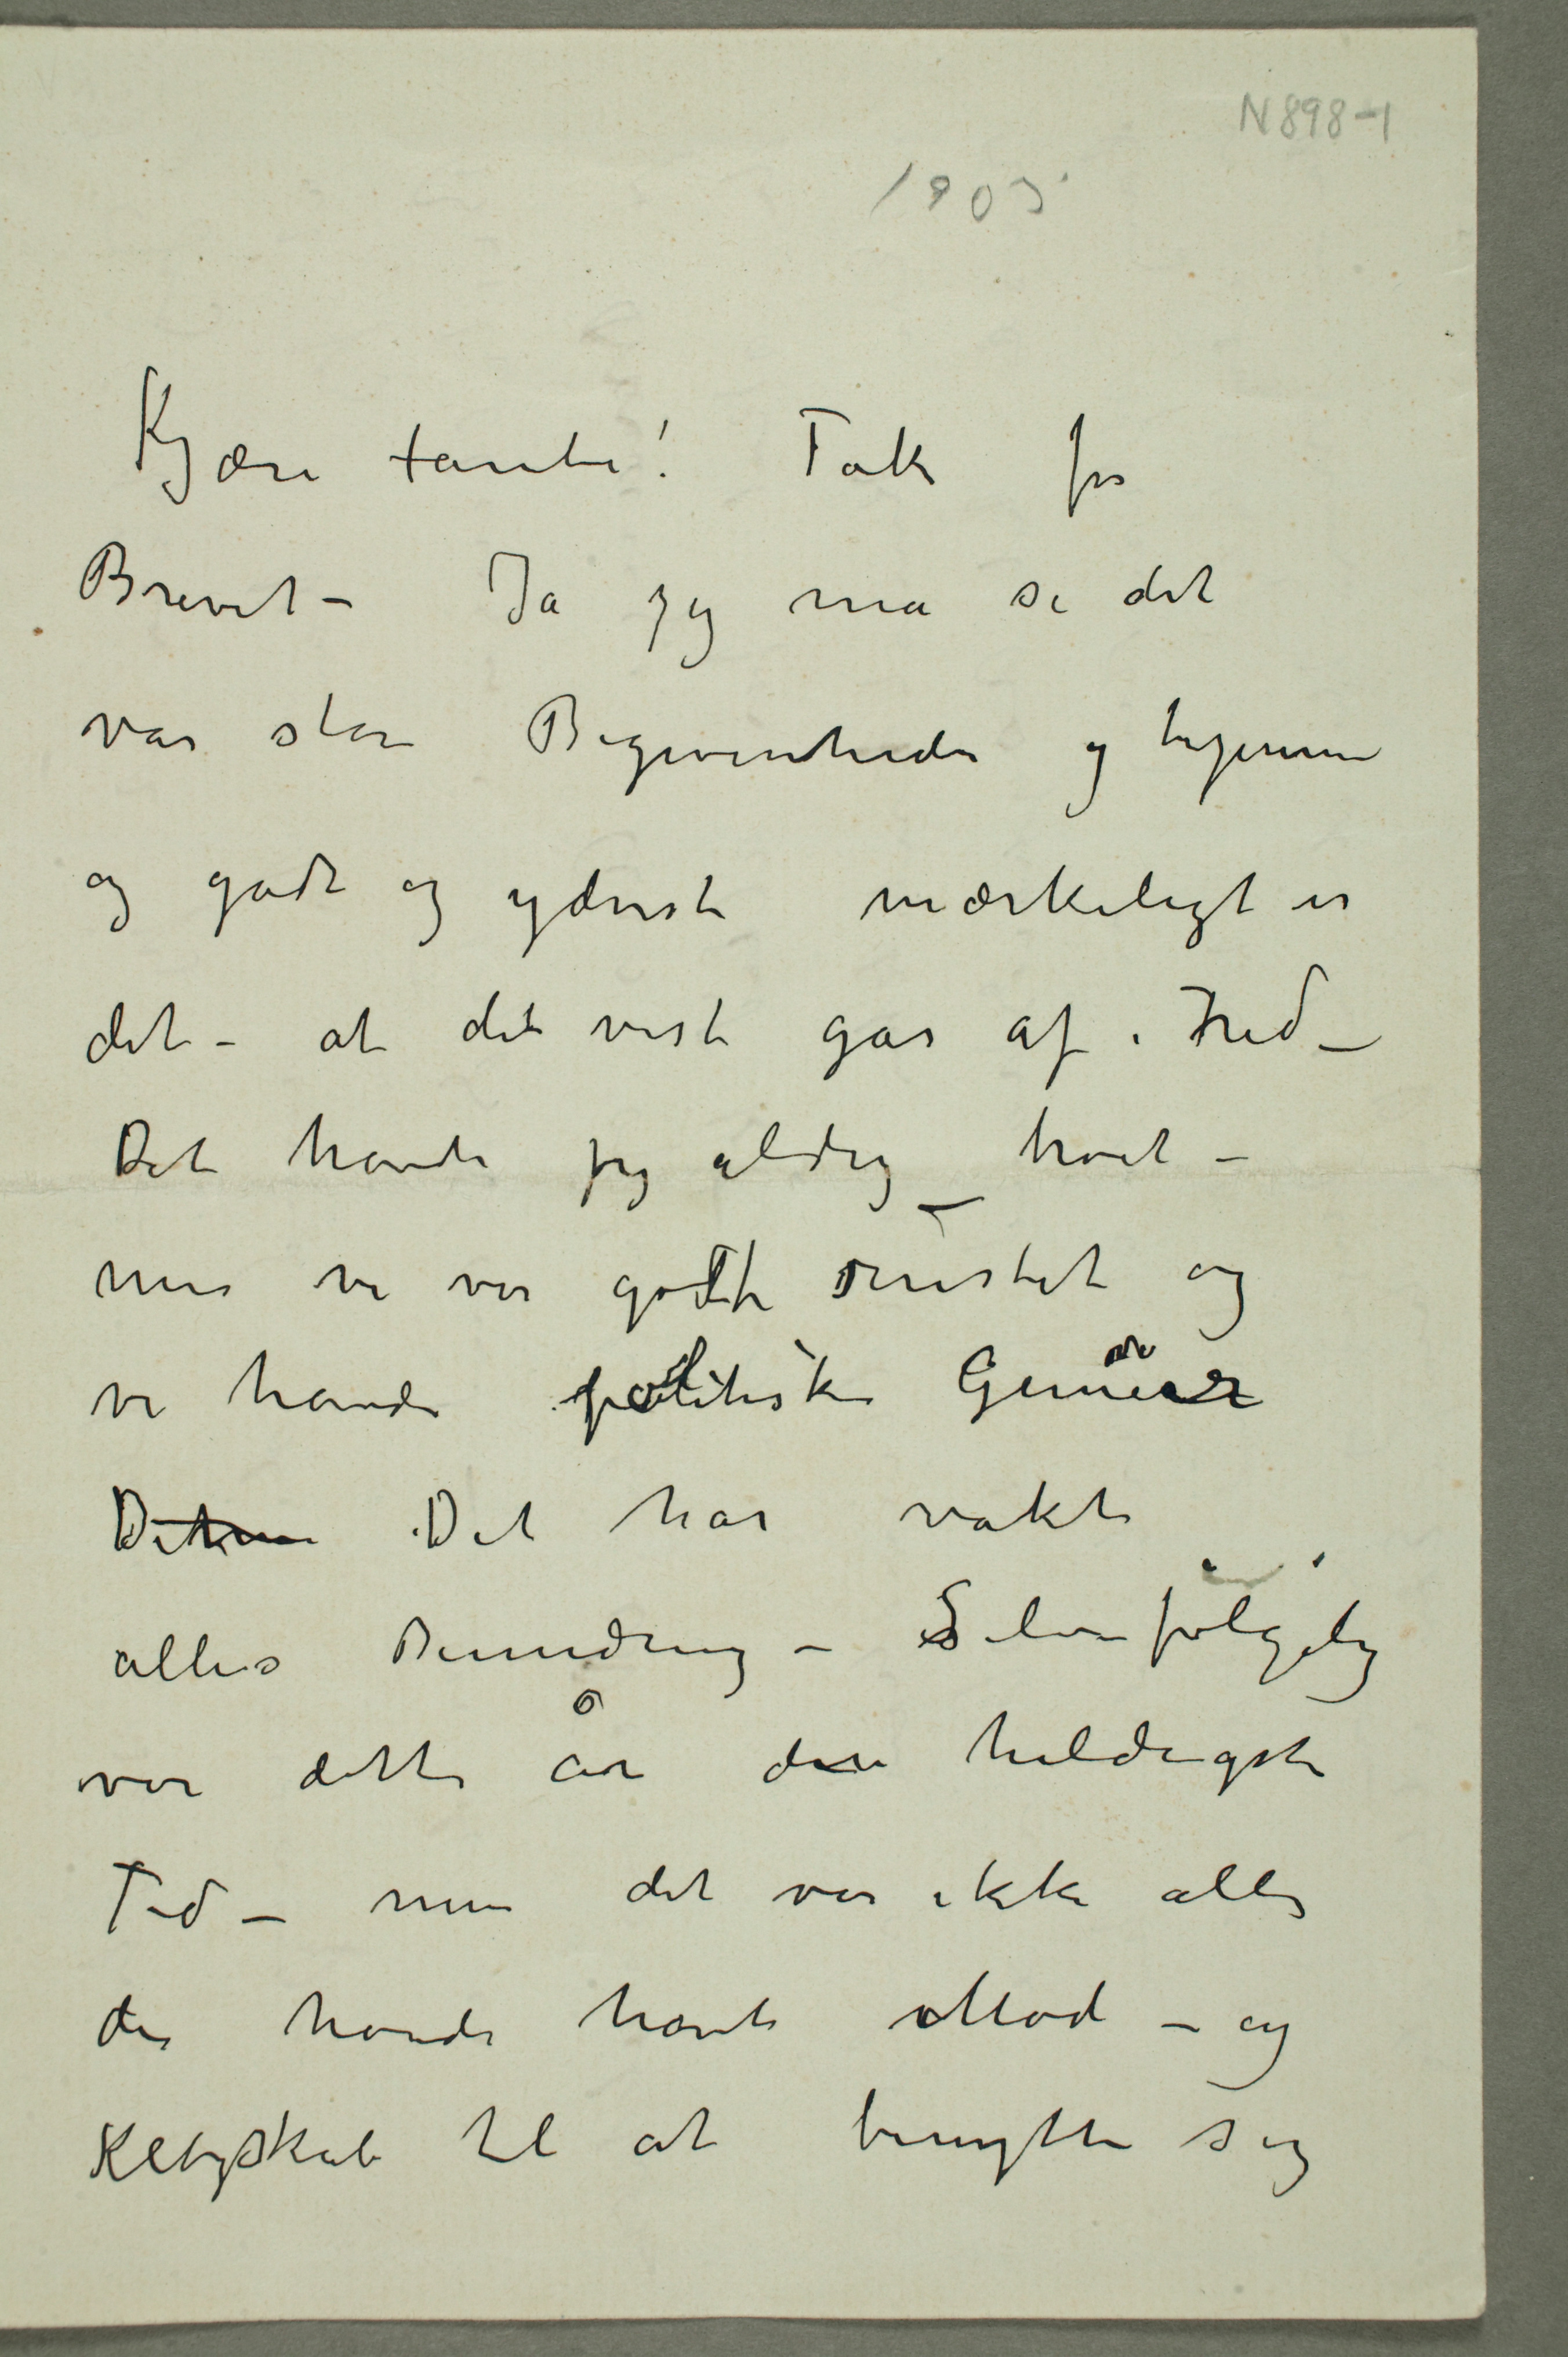 N898-1
1905
Kjære tante! Tak for
Brevet – Ja jeg må si det
var store Begivenheder og hjemme
og godt og yderst mærkeligt er
det – at det vist går af i Fred –
Det havde jeg aldrig troet –
men vi var godt rustet og
vi havde politiske Genier
Det har vakt
alles Beundring – Selvfølgelig
var dette år den heldigste
Tid – men det var ikke alle
der havde havt Mod – og
Kløgskab til at benytte sig